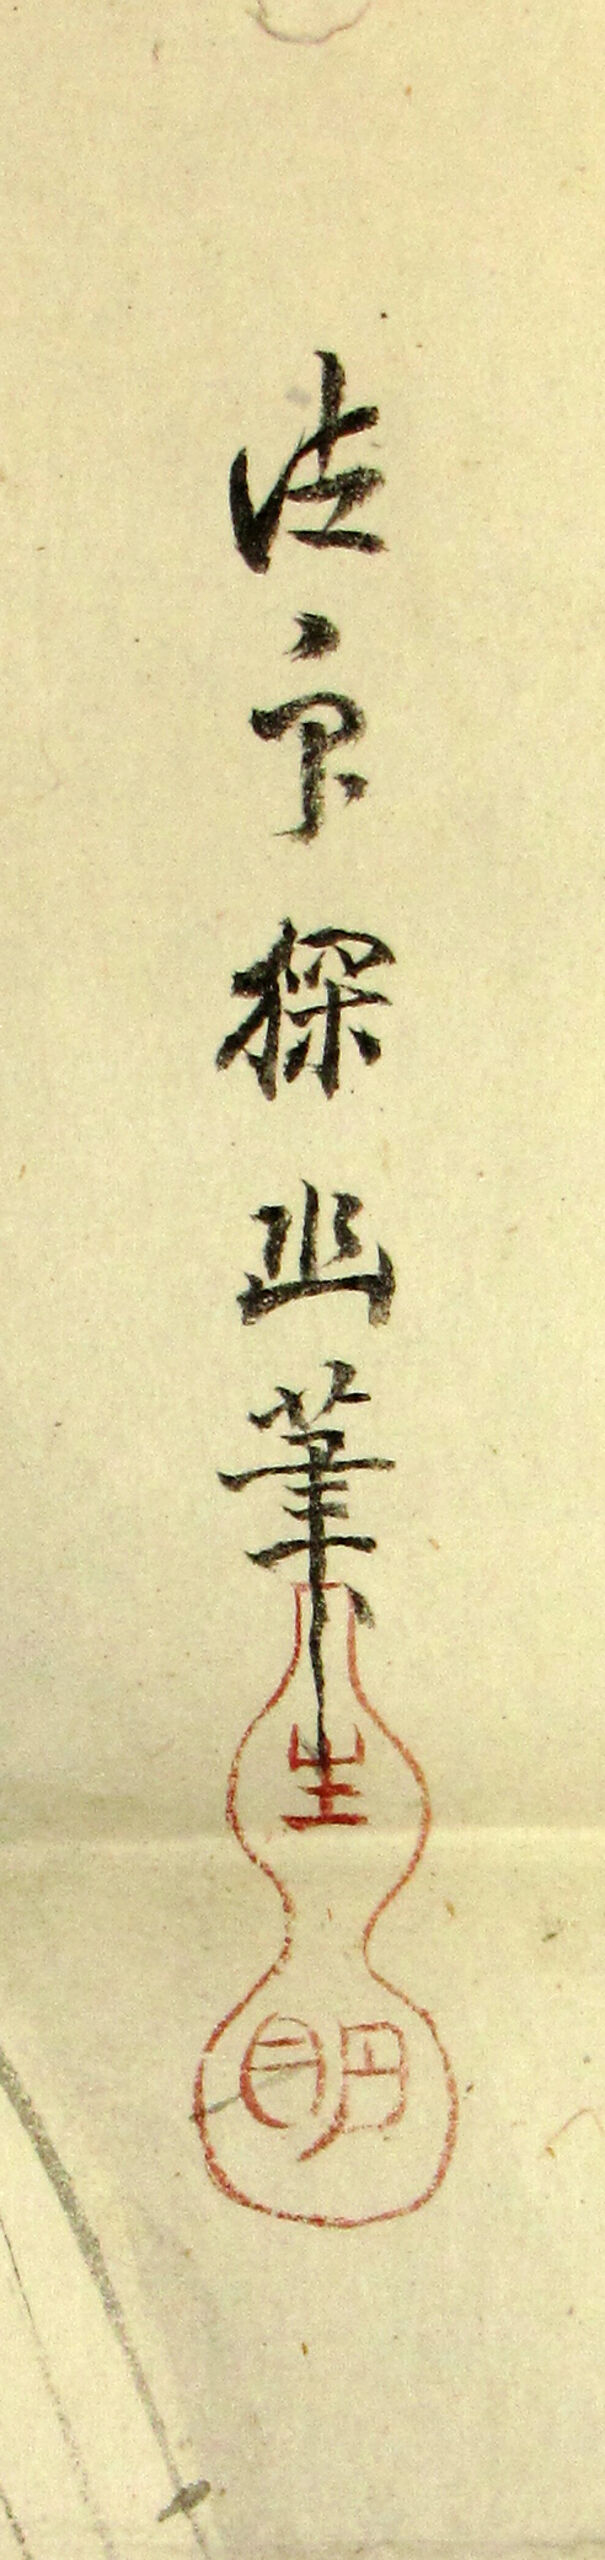 法印探幽筆
生明